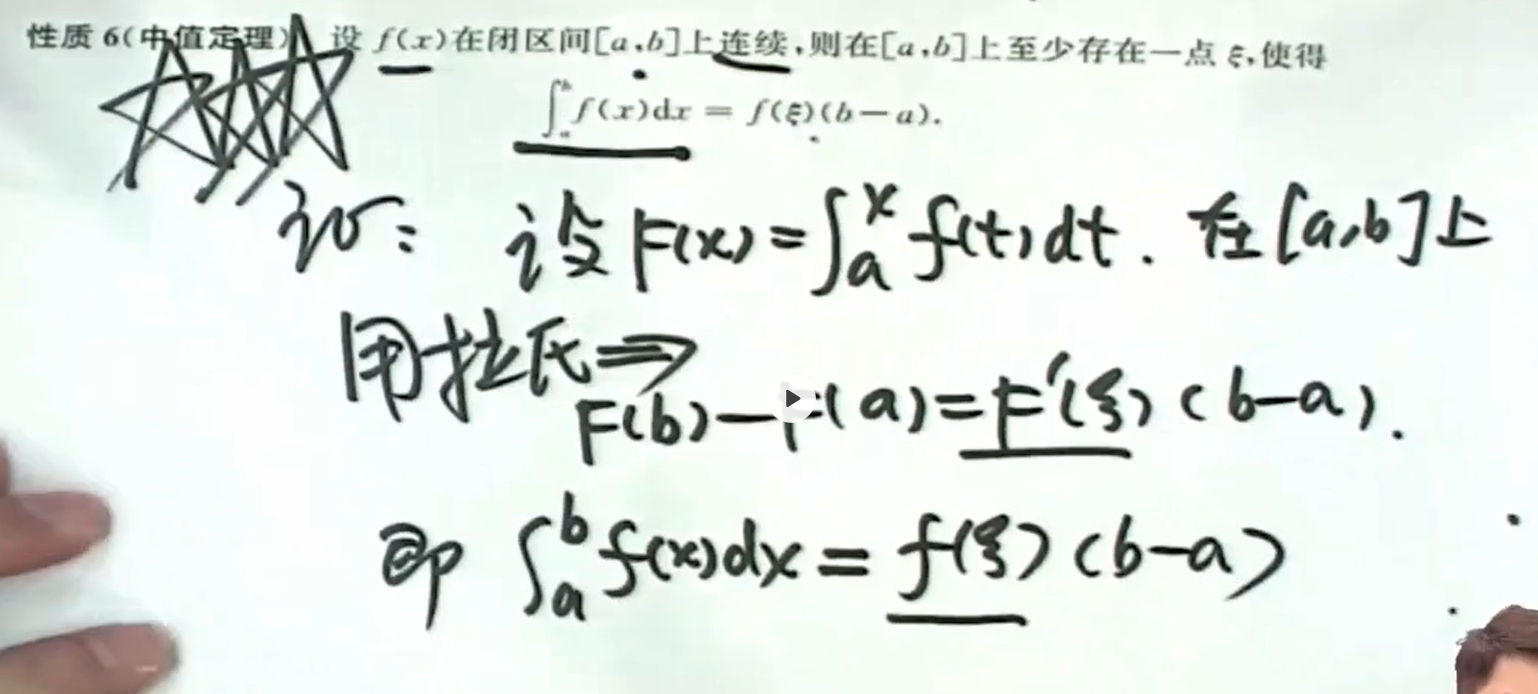 性质 6(中值定理) 设 f(x)在闭区间[a,b]上连续,则在[a,b]上至少存在一点 ξ,使得
∫_a^b f(x)dx = f(ξ)(b-a).
证: 设 F(x)=∫_a^x f(t)dt. 在[a,b]上
用拉氏⇒
F(b)-F(a)=F'(ξ)(b-a).
即 ∫_a^b f(x)dx = f(ξ)(b-a)